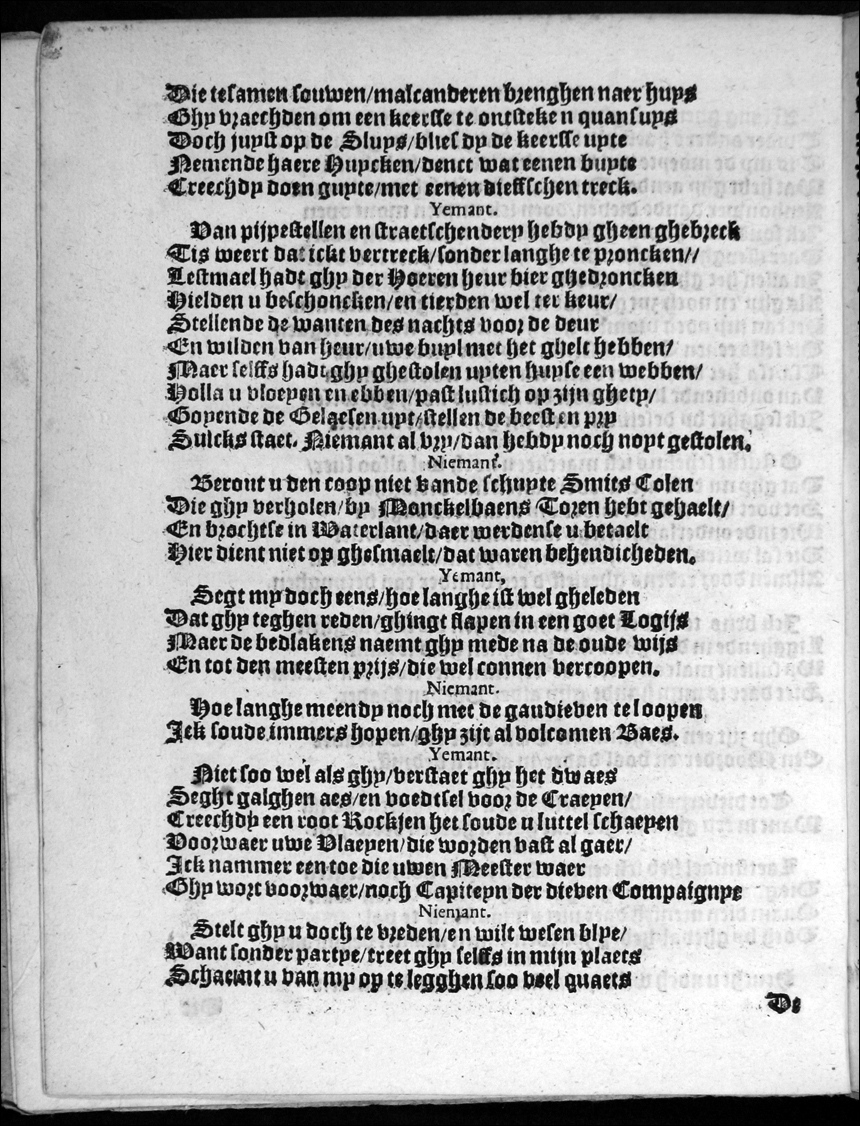 Die tesamen souwen/malcanderen brenghen naer huys
Ghy vraechden om een keersse te ontsteken quansuys
Doch juyst op de Sluys/blies dy de keersse uyte
Nemende haere Huycken/denct wat eenen buyte
Creechdy doen guyte/met eenen dieffschen treck.
Yemant.
Van pijpestellen en straetschendery hebdy gheen ghebreck
Tis weert dat ickt vertreck/sonder langhe te proncken//
Lestmael hadt ghy der Hoeren heur bier ghedroncken
Hielden u beschoncken/en tierden wel ter keur/
Stellende de wanten des nachts voor de deur
En wilden van heur/uwe buyl met het ghelt hebben/
Maer selffs hadt ghy ghestolen uyten huyse een webben/
Holla u vloeyen en ebben/past lustich op zijn ghety/
Goyende de Gelaesen uyt/stellende beesten pry
Sulcks staet. Niemant al vry/dan hebdy noch noyt gestolen.
Niemant.
Berout u den coop niet vande schuyte Smits Colen
Die ghy verholen/by Monckelbaens Toren hebt gehaelt/
En brochtse in Waterlant/daer werdense u betaelt
Hier dient niet op ghesmaelt/dat waren behendicheden.
Yemant,
Segt my doch eens/hoe langhe ist wel gheleden
Dat ghy teghen reden/ghingt slapen in een goet Logijs
Maer de bedlakens naemt ghy mede na de oude wijs
En tot den meesten prijs/die wel connen vercoopen.
Niemant.
Hoe langhe meendy noch met de gaudieven te loopen
Ick soude immers hopen/ghy zijt al volcomen Baes.
Yemant.
Niet soo wel als ghy/verstaet ghy het dwaes
Seght galghen aes/en voedtsel voor de Craeyen/
Creechdy een root Rockjen het soude u luttel schaeyen
Voorwaer uwe Vlaeyen/die worden vast al gaer/
Ick nammer een toe die uwen Meester waer
Ghy wort voorwaer/noch Capiteyn der dieven Compaignye
Niemant.
Stelt ghy u doch te vreden/en wilt wesen blye/
Want sonder partye/treet ghy selffs in mijn plaets
Schaemt u van my op te legghen soo veel quaets
De